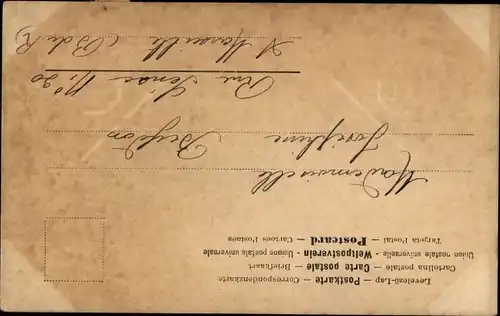 Levelező-Lap — Postkarte — Correspondenzkarte
Cartolina postale — Carte postale — Briefkaart
Union postale universelle - Weltpostverein - Unions postale universale
Targeta Postal — Postcard — Cartoes Postaes
Mademoiselle
Joséphine
Rue Sénac N° 20
A Marseille (B du R)